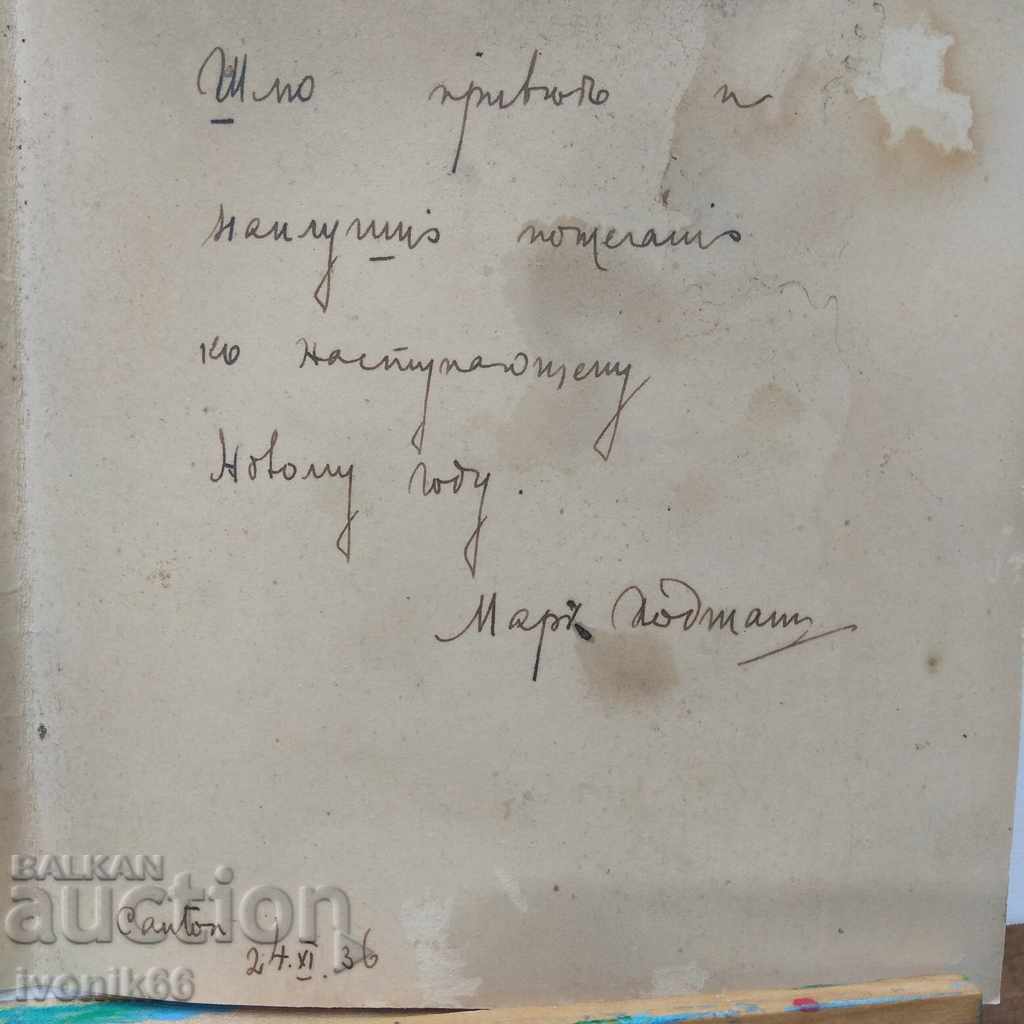 Шлю привѣтъ и
наилучшія пожеланія
къ наступающему
Новому году.
Маркъ
Canton
24.XI.36
BALKAN
auction
ivonik66